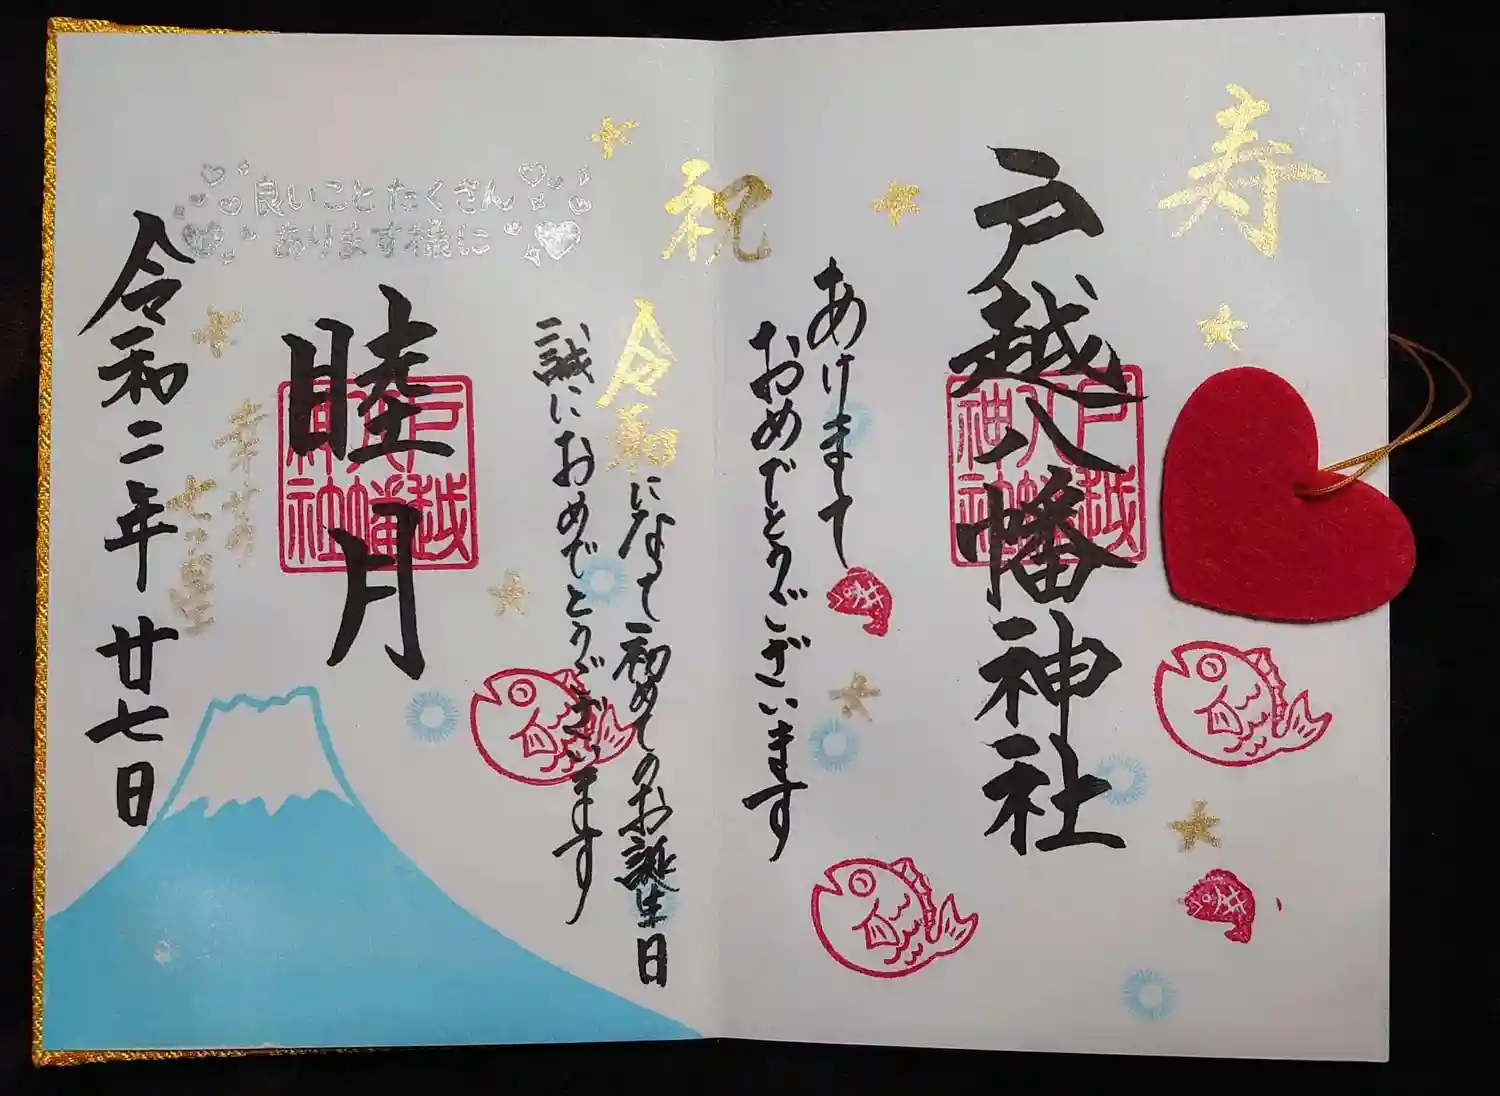 寿
戸越八幡神社
戸越
八幡
神社
あけまして
おめでとうございます
祝
令和になって初めてのお誕生日
誠におめでとうございます
良いことたくさん
あります様に
睦月
戸越
八幡
神社
令和二年廿七日